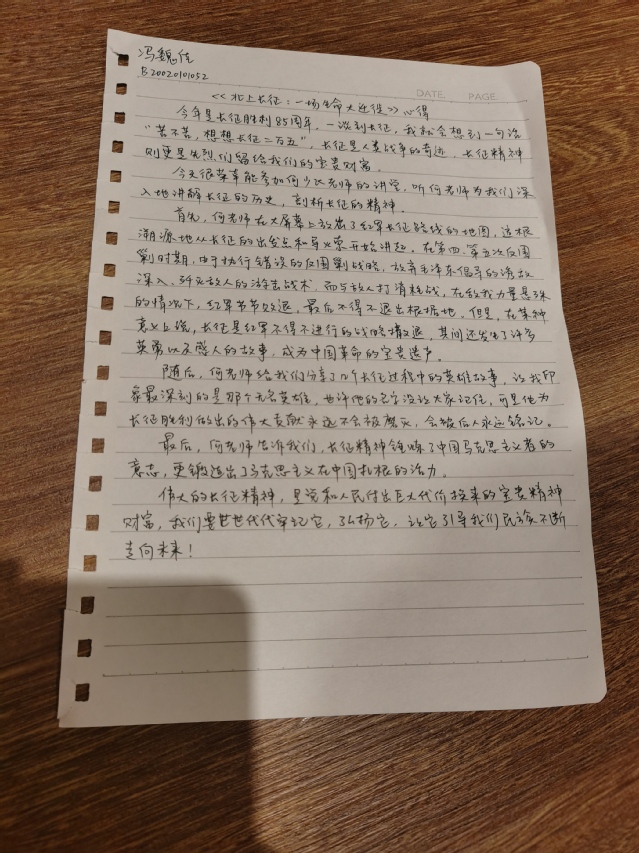 冯魏佳
B20020101052
DATE PAGE
《北上长征：一场生命大迁徙》心得
今年是长征胜利85周年，一谈到长征，我就会想到一句话
“苦不苦，想想长征二万五”，长征是人类战争的奇迹，长征精神
则更是先烈们留给我们的宝贵财富。
今天很荣幸能参加何少从老师的讲堂，听何老师为我们深
入地讲解长征的历史，剖析长征的精神。
首先，何老师在大屏幕上放出了红军长征路线的地图，追根
溯源地从长征的出发点和导火索开始讲起。在第四、第五次反围
剿时期，由于执行错误的反围剿战略，放弃毛泽东倡导的诱敌
深入，歼灭敌人的游击战术，而与敌人打消耗战，在敌我力量悬殊
的情况下，红军节节败退，最后不得不退出根据地。但是，在某种
意义上说，长征是红军不得不进行的战略撤退，其间还发生了许多
英勇以及感人的故事，成为中国革命的宝贵遗产。
随后，何老师给我们分享了几个长征过程中的英雄故事，让我印
象最深刻的是那个无名英雄，也许他的名字没让大家记住，可是他为
长征胜利做出的伟大贡献永远不会被磨灭，会被后人永远铭记。
最后，何老师告诉我们，长征精神锤炼了中国马克思主义者的
意志，更锻造出了马克思主义在中国扎根的活力。
伟大的长征精神，是党和人民付出巨大代价换来的宝贵精神
财富，我们要世世代代牢记它，弘扬它，让它引导我们民族不断
走向未来！